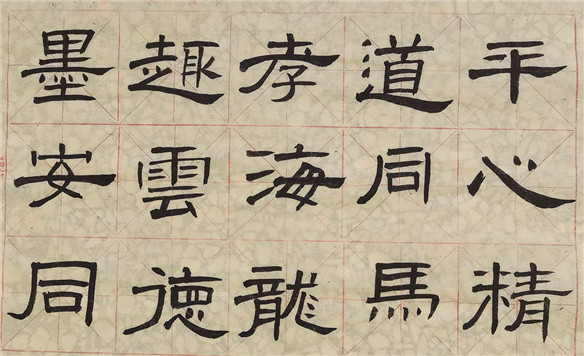 平心精
道同馬
孝海龍
趣雲德
墨安同